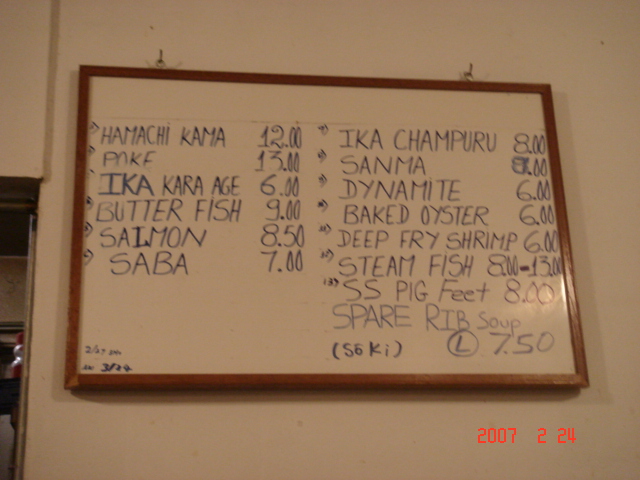 HAMACHI KAMA 12.00
POKE 13.00
IKA KARA AGE 6.00
BUTTER FISH 9.00
SALMON 8.50
SABA 7.00
IKA CHAMPURU 8.00
SANMA .00
DYNAMITE 6.00
BAKED OYSTER 6.00
DEEP FRY SHRIMP 6.00
STEAM FISH 8.00-13.00
13) SS PIG Feet 8.00
SPARE RIB Soup
(SOKi) L 7.50
3/24
2007 2 24